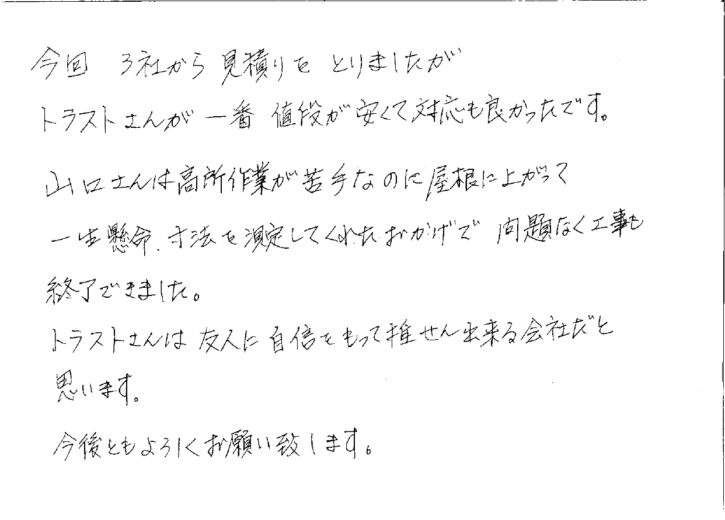 今回 3社から見積りをとりましたが
トラストさんが一番値段が安くて対応も良かったです。
山口さんは高所作業が苦手なのに屋根に上がって
一生懸命、寸法を測定してくれたおかげで 問題なく工事も
終了できました。
トラストさんは友人に自信をもって推せん出来る会社だと
思います。
今後ともよろしくお願い致します。